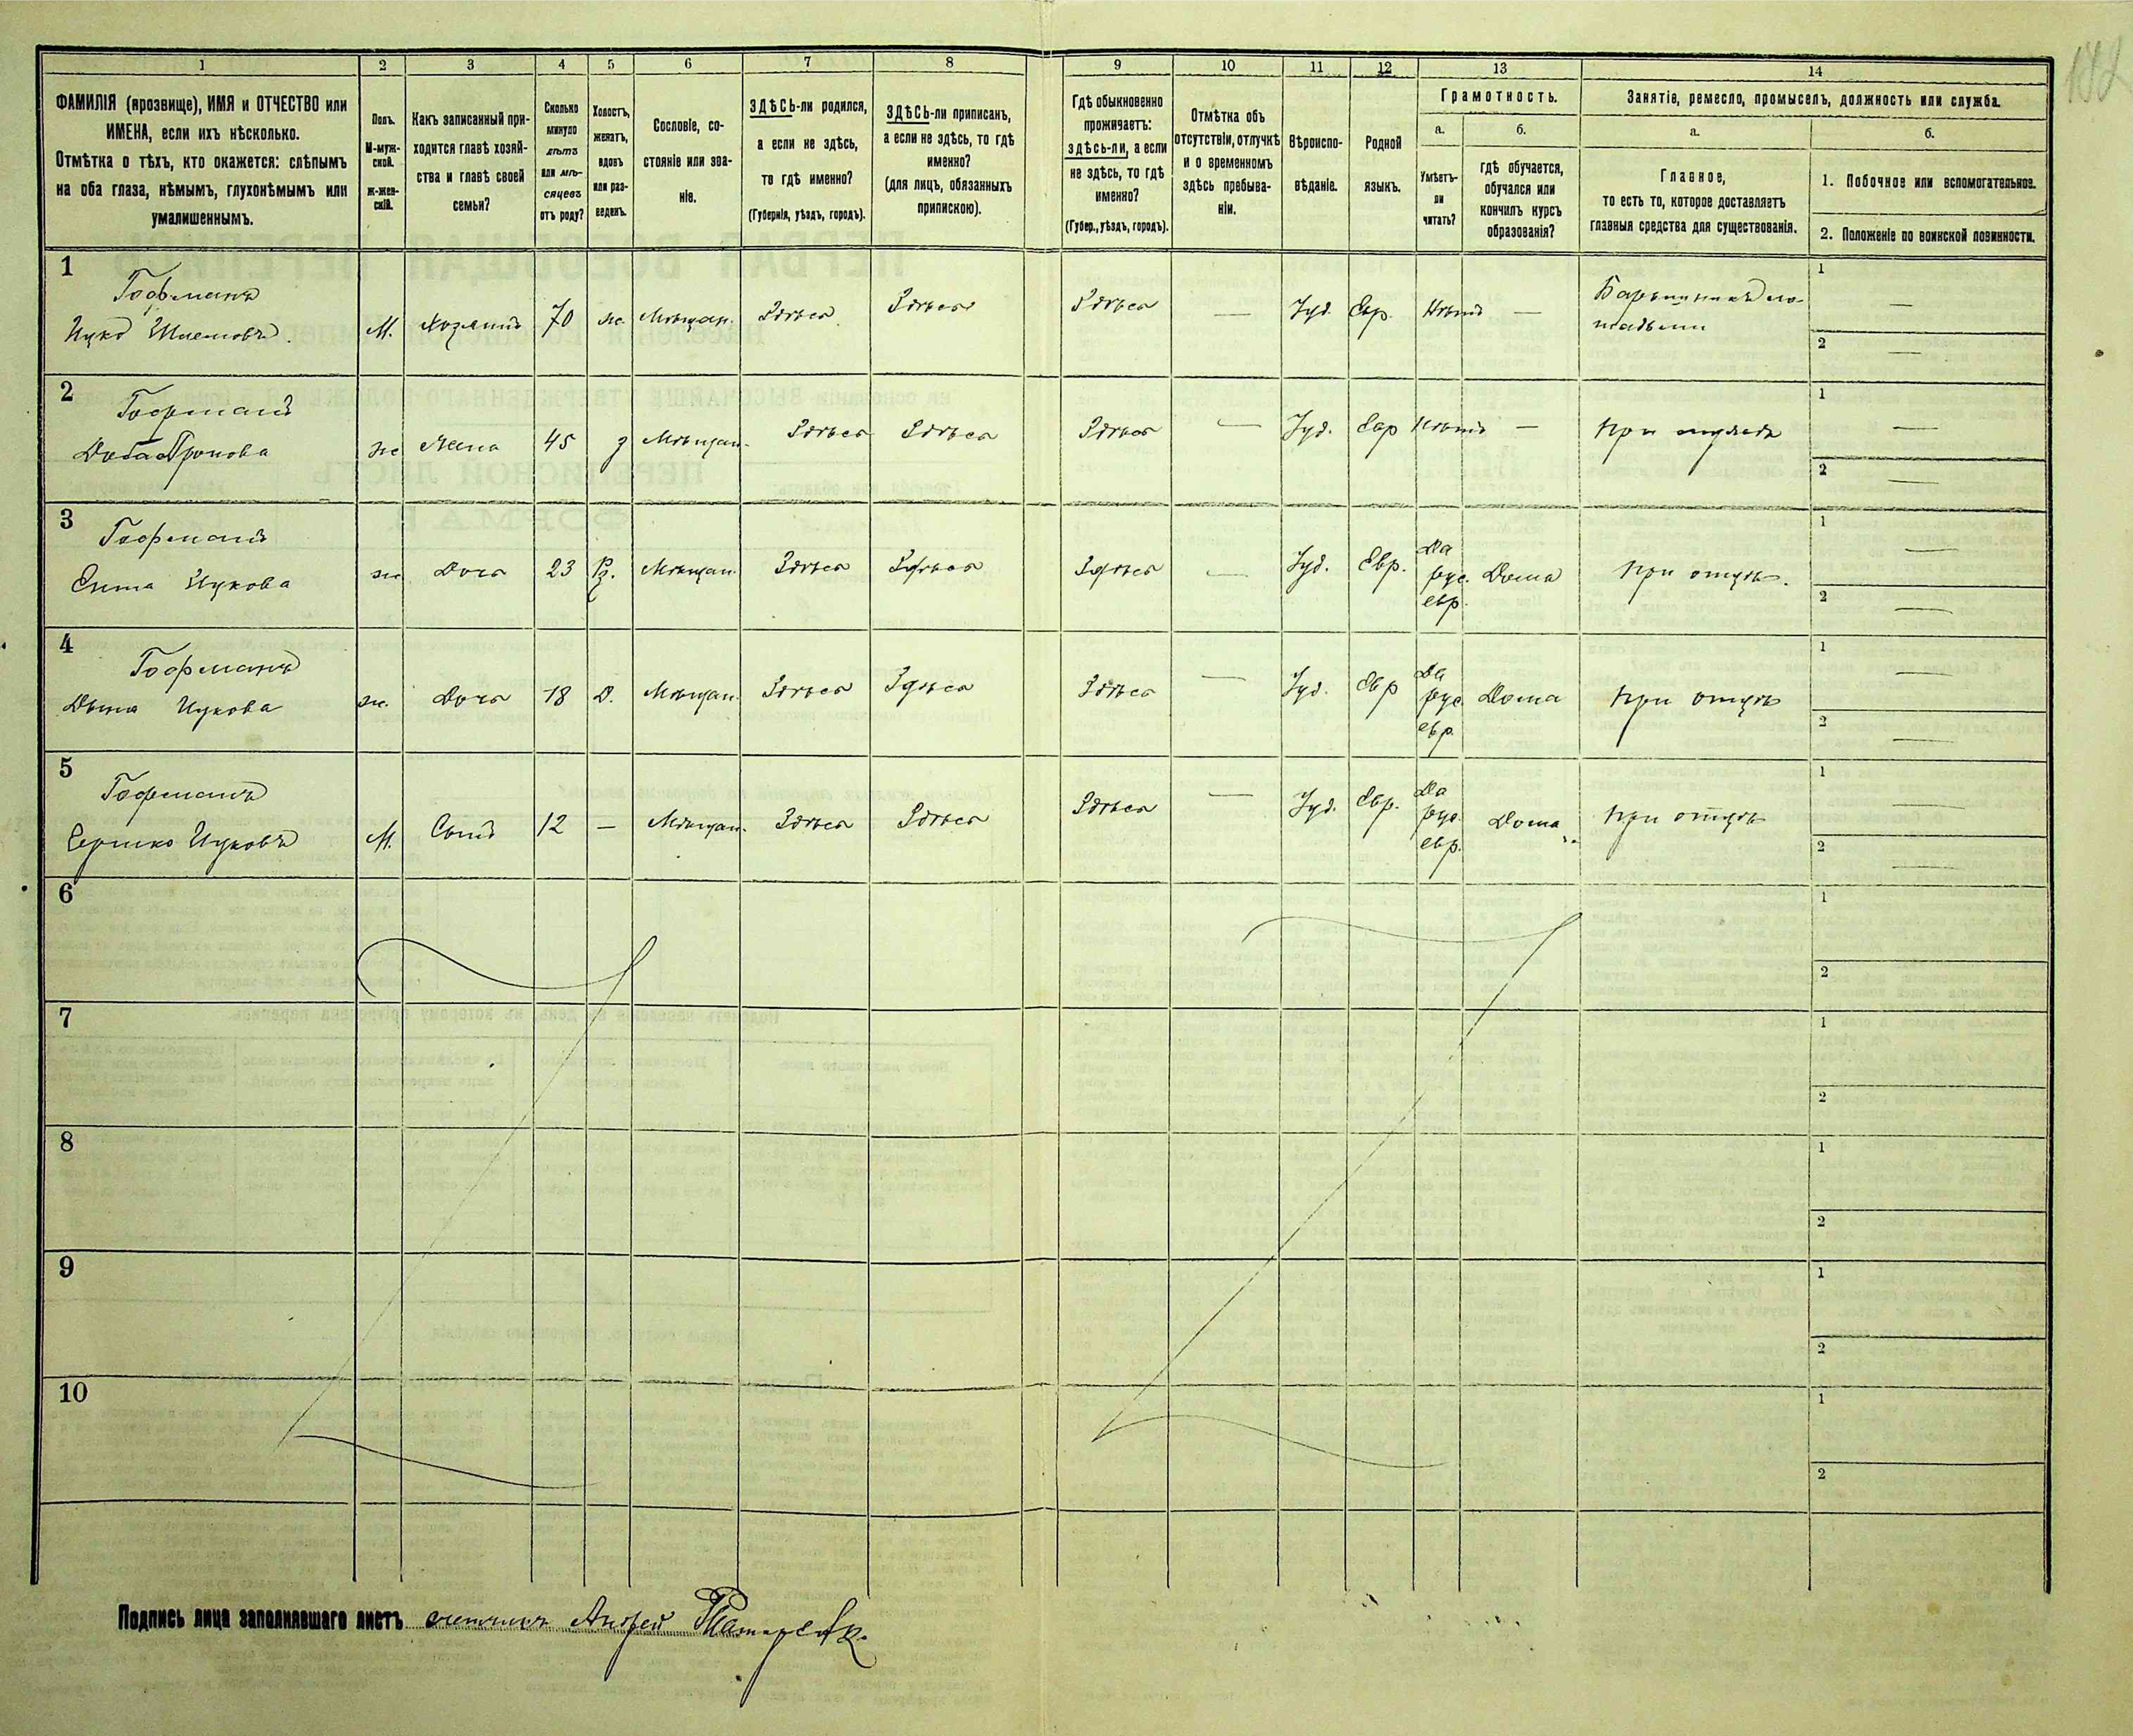 1 2 3 4 5 6 7 8 9 10 11 12 13 14
ФАМИЛІЯ (прозвище), ИМЯ и ОТЧЕСТВО или
ИМЕНА, если ихъ нѣсколько.
Отмѣтка о тѣхъ, кто окажется: слѣпымъ
на оба глаза, нѣмымъ, глухонѣмымъ или
умалишеннымъ.
Полъ.
М-муж-
ской.
ж-жен-
скій.
Какъ записанный при-
ходится главѣ хозяй-
ства и главѣ своей
семьи?
Сколько
минуло
лѣтъ
или мѣ-
сяцевъ
отъ роду?
Холостъ,
женатъ,
вдовъ
или раз-
веденъ.
Сословіе, со-
стояніе или зва-
ніе.
ЗДѢСЬ-ли родился,
а если не здѣсь,
то гдѣ именно?
(Губернія, уѣздъ, городъ).
ЗДѢСЬ-ли приписанъ,
а если не здѣсь, то гдѣ
именно?
(для лицъ, обязанныхъ
припискою).
Гдѣ обыкновенно
проживаетъ:
здѣсь-ли, а если
не здѣсь, то гдѣ
именно?
(Губер., уѣздъ, городъ).
Отмѣтка объ
отсутствіи, отлучкѣ
и о временномъ
здѣсь пребыва-
ніи.
Вѣроиспо-
вѣданіе.
Родной
языкъ.
Грамотность.
а.
Умѣетъ-
ли
читать?
б.
гдѣ обучается,
обучался или
кончилъ курсъ
образованія?
Занятіе, ремесло, промыселъ, должность или служба.
а.
Главное,
то есть то, которое доставляетъ
главныя средства для существованія.
б.
1. Побочное или вспомогательное.
2. Положеніе по воинской повинности.
1
Гофманъ
Ицко Шлемовъ.
М. Хозяинъ 70 ж. Мѣщан. Здѣсь Здѣсь Здѣсь — Іуд. Евр. Нѣтъ — Барышникъ ло-
шадьми
1 —
2 —
2
Гофманъ
ж Жена 45 з Мѣщан. Здѣсь Здѣсь Здѣсь — Іуд. Евр Нѣтъ — при мужѣ
1 —
2 —
3
Гофманъ
Сима Ицкова
ж. Дочь 23 Мѣщан. Здѣсь Здѣсь Здѣсь — Іуд. Евр. Да
рус.
евр.
Дома при отцѣ.
1 —
2 —
4
Гофманъ
Ицкова
ж. Дочь 18 Д. Мѣщан. Здѣсь Здѣсь Здѣсь — Іуд. Евр Да
рус.
евр.
Дома при отцѣ
1 —
2 —
5
Гофманъ
Ицковъ
М. Сынъ 12 — Мѣщан. Здѣсь Здѣсь Здѣсь — Іуд. Евр. Да
рус.
евр.
Дома при отцѣ
1 —
2 —
6
1
2
7
1
2
8
1
2
9
1
2
10
1
2
Подпись лица заполнявшаго листъ счетчикъ Андрей